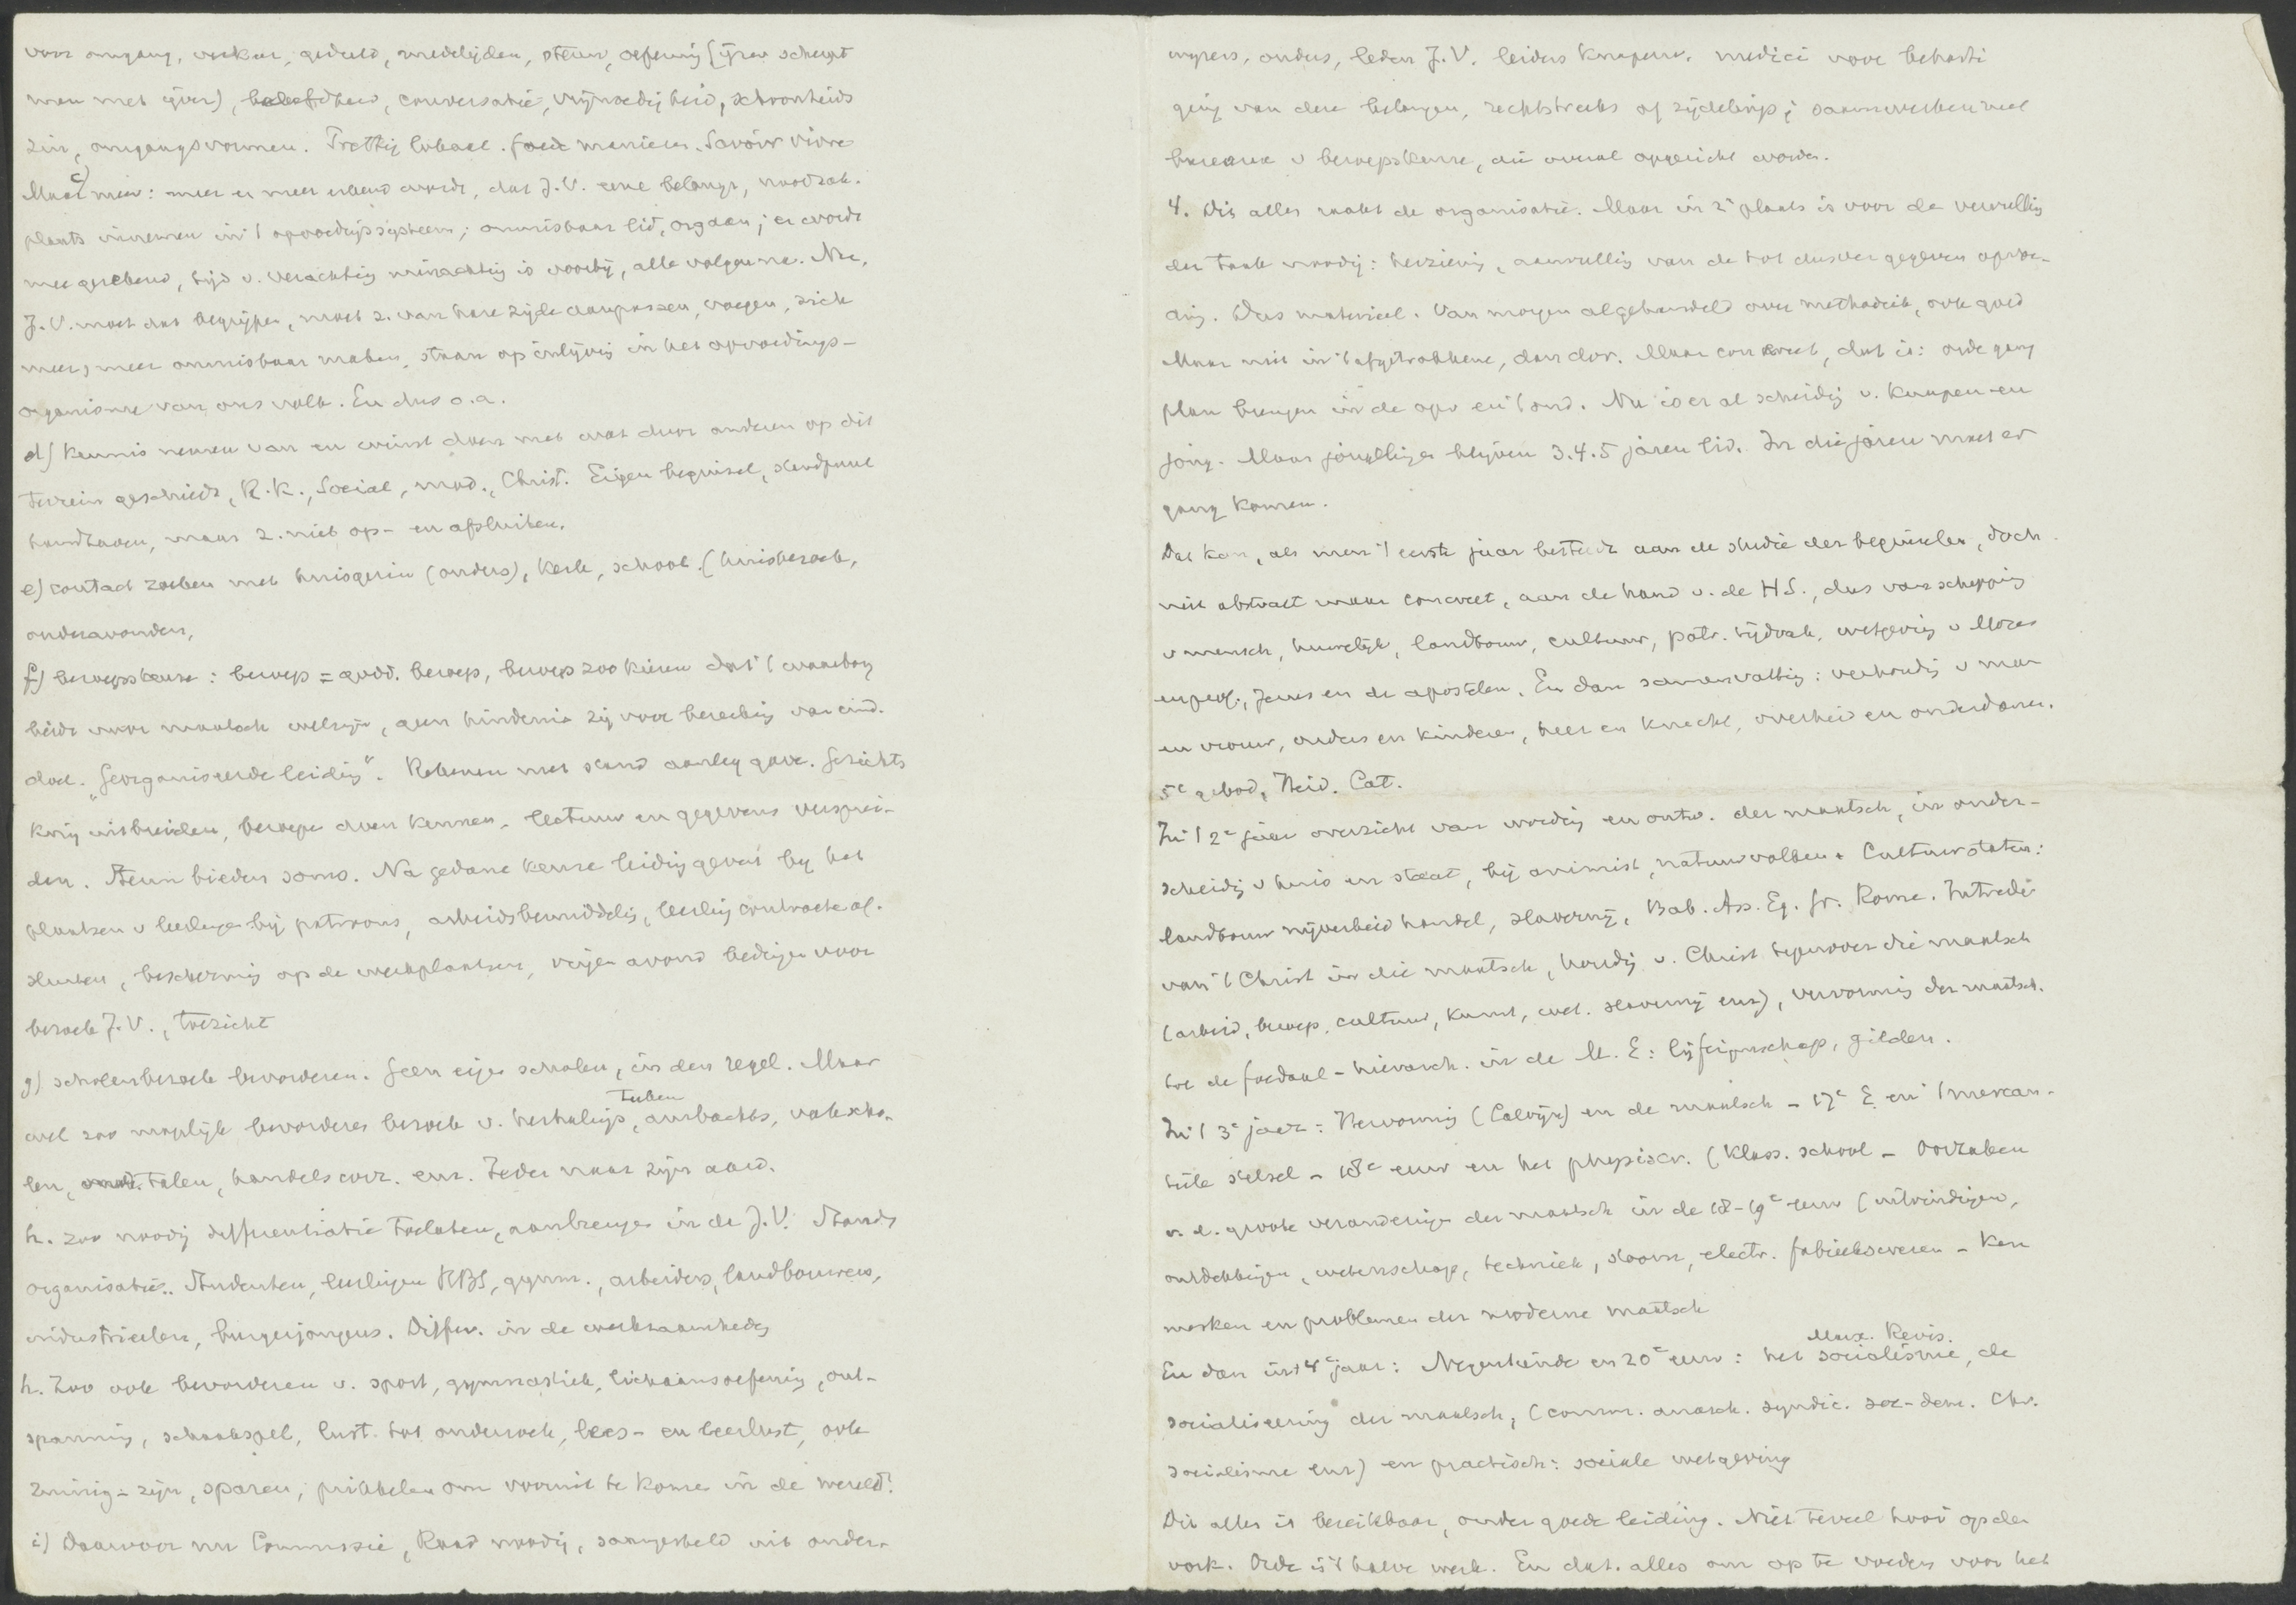 voor omgang, verkeer, geduld, medelijden, steun, oefening (ijzer scherpt
man met ijzer), beleefdheid, conversatie, vrijmoedigheid, schoonheids
zin, omgangsvormen. Prettig lokaal. Goede manieren. Savoir vivre
c) Maar meer: meer en meer erkend wordt, dat J.V. eene belangr., noodzak.
plaats innemen in 't opvoedingssysteem; onmisbaar lid, orgaan; er wordt
mee gerekend, tijd v. verachting minachting is voorbij, alle volgen na. Nu,
J.V. moet dat begrijpen, moet z. van hare zijde aanpassen, voegen, zich
meer, meer onmisbaar maken, staan op inlijving in het opvoedings-
organisme van ons volk. En dus o.a.
d) Kennis nemen van en winst doen met wat door anderen op dit
terrein geschiedt, R.K., Social, mod., Christ. Eigen beginsel, standpunt
handhaven, maar z. niet op- en afsluiten.
e) contact zoeken met huisgezin (ouders), kerk, school. (huisbezoek,
ouderavonden,
f) beroepskeuze: beroep = godd. beroep, beroep zoo kiezen dat 't waarborg
biede voor maatsch welzijn, geen hindernis zij voor bereiking van eind-
doel. "Georganiseerde leiding". Rekenen met stand aanleg gave. Gezichts
kring uitbreiden, beroepen doen kennen, lectuur en gegevens versprei-
den. Steun bieden soms. Na gedane keuze leiding geven bij het
plaatsen v leerlingen bij patroons, arbeidsbemiddeling, leerlingcontracten af-
sluiten, bescherming op de werkplaatsen, vrijen avond bedingen voor
bezoek J.V., toezicht
g) scholenbezoek bevorderen. Geen eigen scholen, in den regel. Maar
wel zoo mogelijk bevorderen bezoek v. herhalings, teeken ambachts, vakscho-
len, talen, handelscorr. enz. Ieder naar zijn aard.
h. zoo noodig differentiatie toelaten, aanbrengen in de J.V. Stands
organisatie.. Studenten, leerlingen HBS, gymn., arbeiders, landbouwers,
industrieelen, burgerjongens. Differ. in de werkzaamheden
h. Zoo ook bevorderen v. sport, gymnastiek, lichaamsoefening, ont-
spanning, schaakspel, lust tot onderzoek, lees- en leerlust, ook
zuinig-zijn, sparen, prikkelen om vooruit te komen in de wereld!
i) Daarvoor nu Commissie, Raad noodig, saamgesteld uit onder-
wijzers, ouders, leden J.V. leiders knapenv. medici voor beharti
ging van deze belangen, rechtstreeks of zijdelings; saamwerken met
bureaux v beroepskeuze, die overal opgericht worden.
4. Dit alles raakt de organisatie. Maar in 2e plaats is voor de vervulling
der taak noodig: herziening, aanvulling van de tot dusver gegeven opvoe-
ding. Dus materieel. Van morgen afgehandeld over methodiek, ook goed
Maar niet in 't afgetrokkene, dan dor. Maar concreet, dat is: orde gang
plan brengen in de opv en 't ond. Nu is er al scheiding v. knapen en
jong. Maar jongelingen blijven 3.4.5 jaren lid. In die jaren moet er
gang komen.
Dat kan, als men 't eerste jaar besteedt aan de studie der beginselen, doch
niet abstract maar concreet, aan de hand v. de H.S., dus van schepping
v mensch, huwelijk, landbouw, cultuur, patr. tijdvak, wetgeving v Mozes
en prof., Jezus en de apostelen. En dan samenvatting: verhouding v man
en vrouw, ouders en kinderen, heer en knecht, overheid en onderdanen.
5e gebod, Heid. Cat.
In 't 2e jaar overzicht van wording en ontw. der maatsch, in onder-
scheidg v huis en staat, bij animist, natuurvolken + Cultuurstaten:
landbouw nijverheid handel, slavernij, Bab. Ass. Eg. Gr. Rome. Intrede
van 't Christ in die maatsch, houdg v. Christ tegenover die maatsch
(arbeid, beroep, cultuur, kunst, wet. slavernij enz), vervorming der maatsch.
tot de foedaal-hierarch. in de M.E: lijfeigenschap, gilden.
In 't 3e jaar: Hervorming (Calvijn) en de maatsch - 17e E en 't mercan-
tiele stelsel - 18e eeuw en het physiocr. (Klass. school - Oorzaken
v. d. groote veranderingen der maatsch in de 18-19e eeuw (uitvindingen,
ontdekkingen, wetenschap, techniek, stoom, electr. fabriekswezen - Ken
merken en problemen der moderne maatsch
En dan in 't 4e jaar: Negentiende en 20e eeuw: het Marx. Revis. socialisme, de
socialiseering der maatsch, (comm. anarch. syndic. soc-dem. Chr.
socialisme enz) en practisch: sociale wetgeving
Dit alles is bereikbaar, onder goede leiding. Niet teveel hooi op den
vork. Orde is 't halve werk. En dat alles om op te voeden voor het